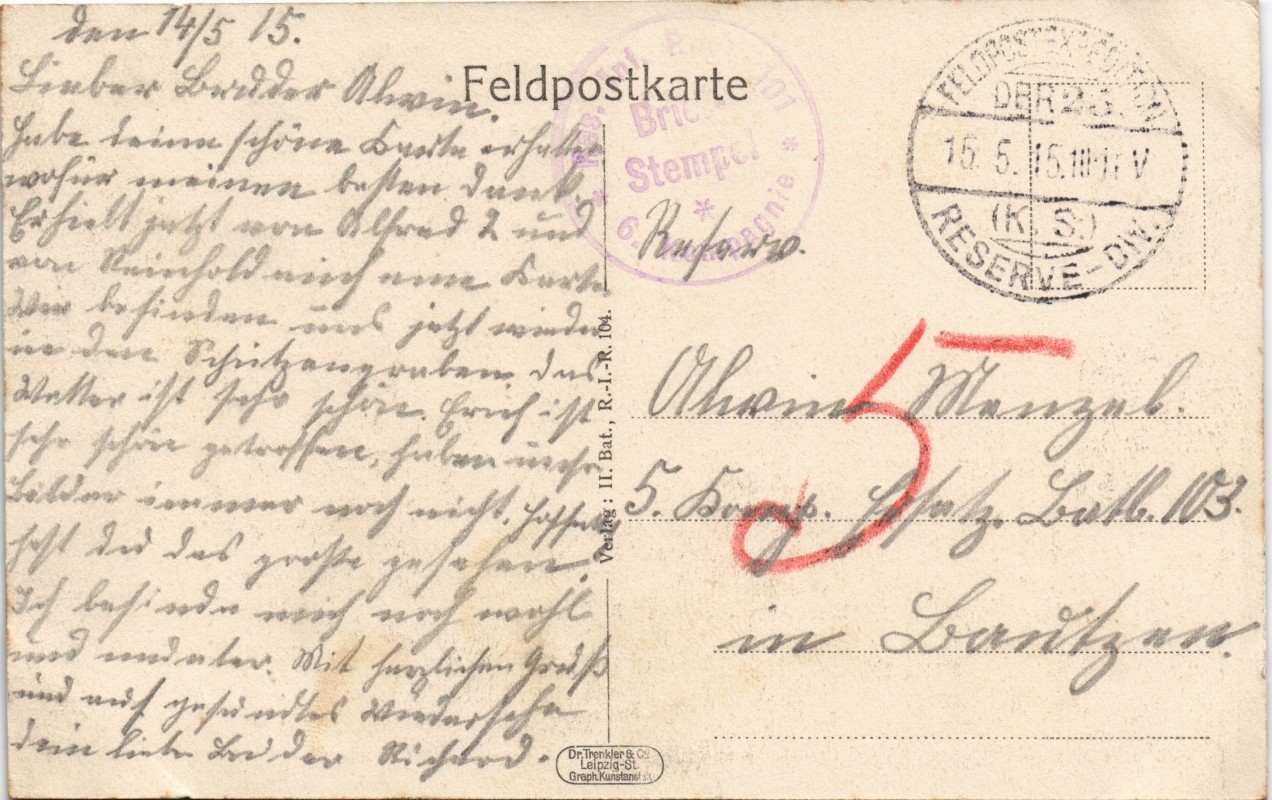 den 14/5 15.
Lieber Bruder Alwin.
Habe deine schöne Karte erhalten
wofür meinen besten Dank.
Erhielt jetzt von Alfred 2 und
von Reinhold auch eine Karte
Wir befinden uns jetzt wieder
in den Schützengraben. das
Wetter ist sehr schön. Erich ist
sehr schön getroffen, haben unsre
Bilder immer noch nicht.
hast du das große gesehen.
Ich befinde mich noch wohl
und munter. Mit herzlichen Gruß
und auf gesundtes Wiedersehn
dein lieber Bruder Richard.
Feldpostkarte
Res. Inf. R. 101
Brief
Stempel
6. Kompagnie
FELDPOSTEXPEDITION
DER 23.
15. 5. 15. V
(K. S.)
RESERVE-DIV.
Reserv.
Alwin Menzel.
5
5. Komp. Ersatz. Batl. 103.
in Bautzen.
Verlag: II. Bat., R.-I.-R. 104.
Dr. Trenkler & Co
Leipzig-St.
Graph. Kunstanst.